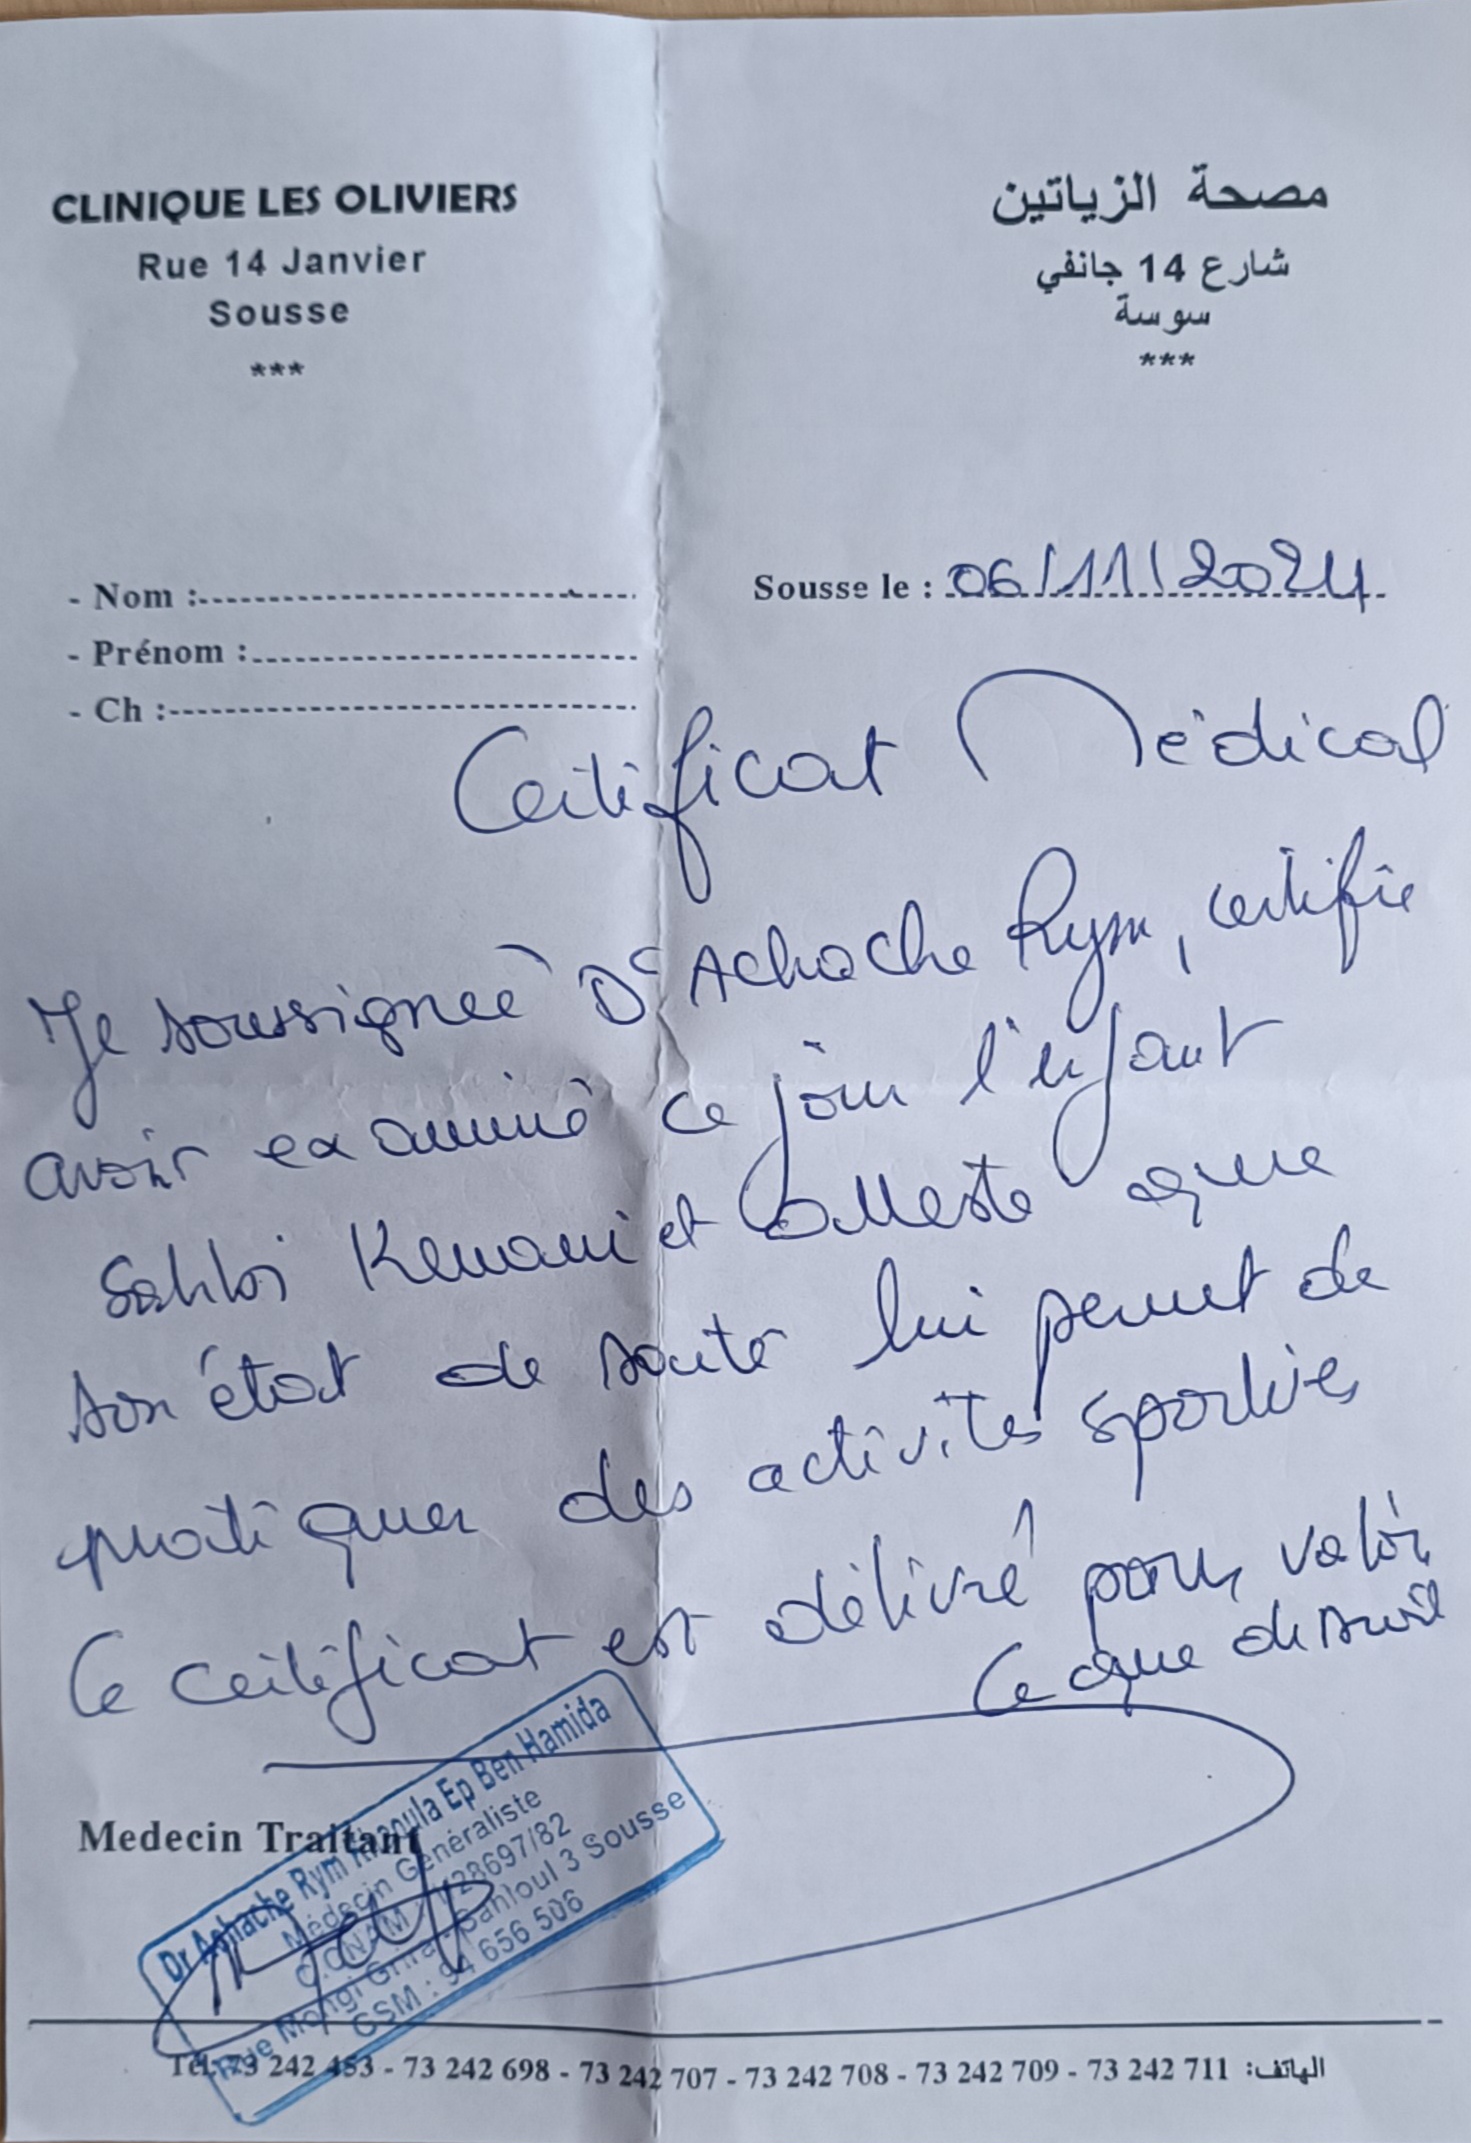 CLINIQUE LES OLIVIERS
Rue 14 Janvier
Sousse
***
مصحة الزياتين
شارع 14 جانفي
سوسة
***
- Nom :
- Prénom :
- Ch :
Sousse le : 06/11/2024
Certificat Médical
Je soussignée Dr Achache Rym, certifie
avoir examiné ce jour l'enfant
Sahbi Kenani et atteste que
son état de santé lui permet de
pratiquer des activités sportives
Ce certificat est délivré pour valoir
ce que de droit
Medecin Traitant
Dr Achache Rym Khaoula Ep Ben Hamida
Médecin Généraliste
C.ONAM : 1/28697/82
Rue Mongi Sahloul 3 Sousse
GSM : 94 656 506
Tél: 73 242 453 - 73 242 698 - 73 242 707 - 73 242 708 - 73 242 709 - 73 242 711 :الهاتف